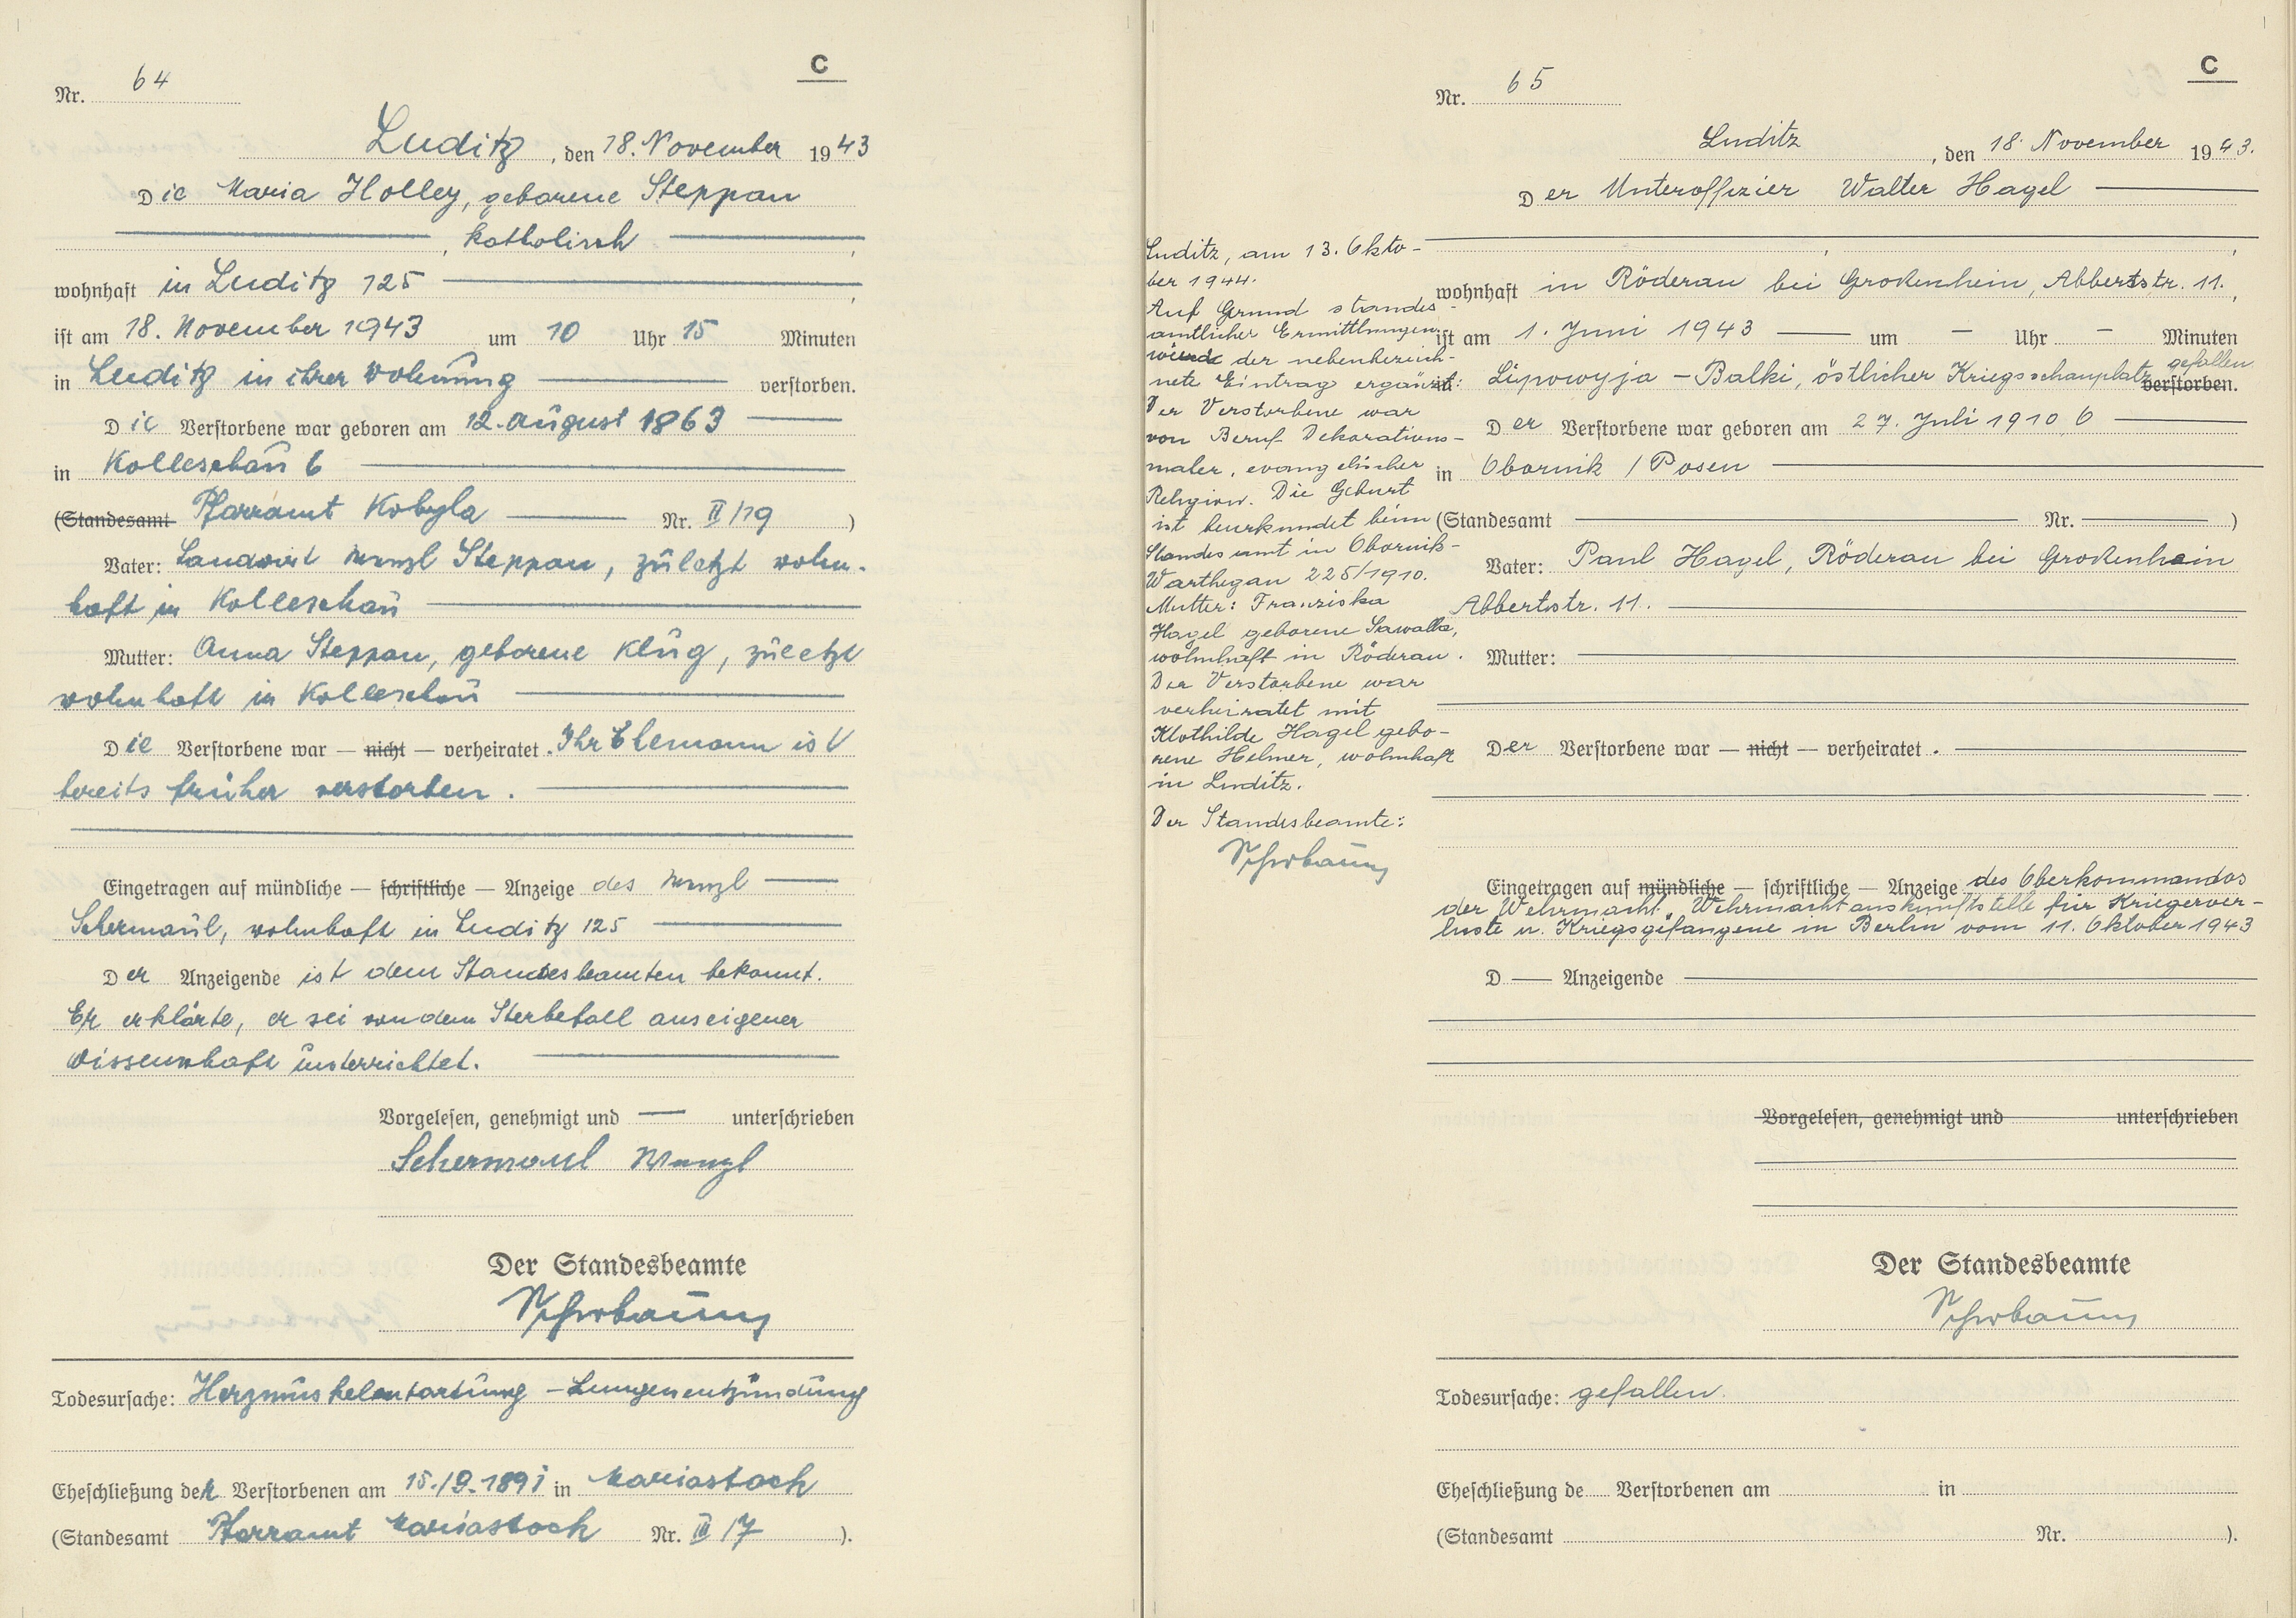 C
Nr. 64
Luditz, den 18. November 1943
Die Maria Holley, geborene Steppan
, katholisch ,
wohnhaft in Luditz 125 ,
ist am 18. November 1943 um 10 Uhr 15 Minuten
in Luditz in ihrer Wohnung verstorben.
Die Verstorbene war geboren am 12. August 1863
in Kolleschau 6
(Standesamt Pfarramt Kobyla Nr. II/19 )
Vater: Landwirt Wenzl Steppan, zuletzt wohn-
haft in Kolleschau
Mutter: Anna Steppan, geborene Klug, zuletzt
wohnhaft in Kolleschau
Die Verstorbene war — nicht — verheiratet. Ihr Ehemann ist
bereits früher verstorben.
Eingetragen auf mündliche — schriftliche — Anzeige des Wenzl
Schermaul, wohnhaft in Luditz 125
Der Anzeigende ist dem Standesbeamten bekannt.
Er erklärte, er sei von dem Sterbefall aus eigener
Wissenschaft unterrichtet.
Vorgelesen, genehmigt und — unterschrieben
Schermaul Wenzl
Der Standesbeamte
Todesursache: Herzmuskelentartung – Lungenentzündung
Eheschließung der Verstorbenen am 15./9.1891 in Mariastock
(Standesamt Pfarramt Mariastock Nr. III/7 ).
C
Nr. 65
Luditz, den 18. November 1943.
Der Unteroffizier Walter Hagel
, ,
wohnhaft in Röderau bei Großenhein, Abbertstr. 11. ,
ist am 1. Juni 1943 — um – Uhr – Minuten
gefallen
in Lipowyja – Balki, östlicher Kriegsschauplatz verstorben.
Der Verstorbene war geboren am 27. Juli 1910
in Obornik / Posen
(Standesamt — Nr. — )
Vater: Paul Hagel, Röderau bei Großenhain
Abbertstr. 11.
Mutter: —
Der Verstorbene war — nicht — verheiratet.
Eingetragen auf mündliche — schriftliche — Anzeige des Oberkommandos
der Wehrmacht, Wehrmachtauskunftstelle für Kriegerver-
luste u. Kriegsgefangene in Berlin vom 11. Oktober 1943
D — Anzeigende
Vorgelesen, genehmigt und unterschrieben
Der Standesbeamte
Todesursache: gefallen.
Eheschließung de Verstorbenen am in
(Standesamt Nr. ).
Luditz, am 13. Okto-
ber 1944.
Auf Grund standes-
amtlicher Ermittlungen
wurde der nebenbezeich-
nete Eintrag ergänzt:
Der Verstorbene war
von Beruf Dekorations-
maler, evangelischer
Religion. Die Geburt
ist beurkundet beim
Standesamt in Obornik-
Warthegau 225/1910.
Mutter: Franziska
Hagel geborene Sawalla,
wohnhaft in Röderau.
Der Verstorbene war
verheiratet mit
Klothilde Hagel gebo-
rene Helmer, wohnhaft
in Luditz.
Der Standesbeamte: